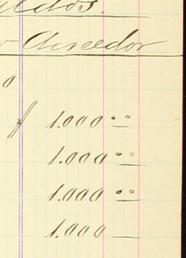 ldos.
Acreedor
1.000
1.000
1.000
1.000